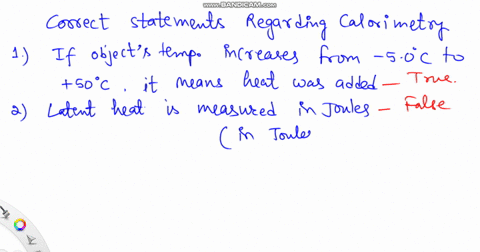 WWW.BANDICAM.COM
Correct statements Regarding Calorimetry
1.) If object's temp. increases from -5.0°C to
+50°C, it means heat was added - True.
2) Latent heat is measured in Joules - False
(in Joules